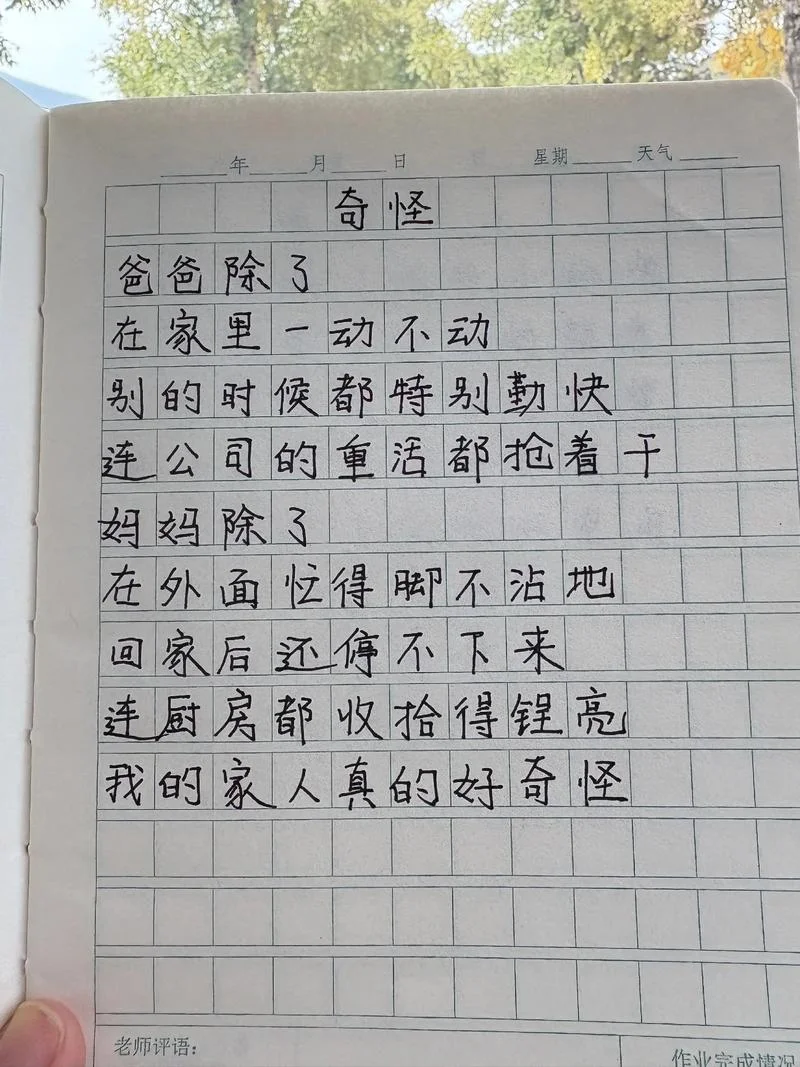 年 月 日 星期 天气
奇怪
爸爸除了
在家里一动不动
别的时候都特别勤快
连公司的重活都抢着干
妈妈除了
在外面忙得脚不沾地
回家后还停不下来
连厨房都收拾得锃亮
我的家人真的好奇怪
老师评语：
作业完成情况